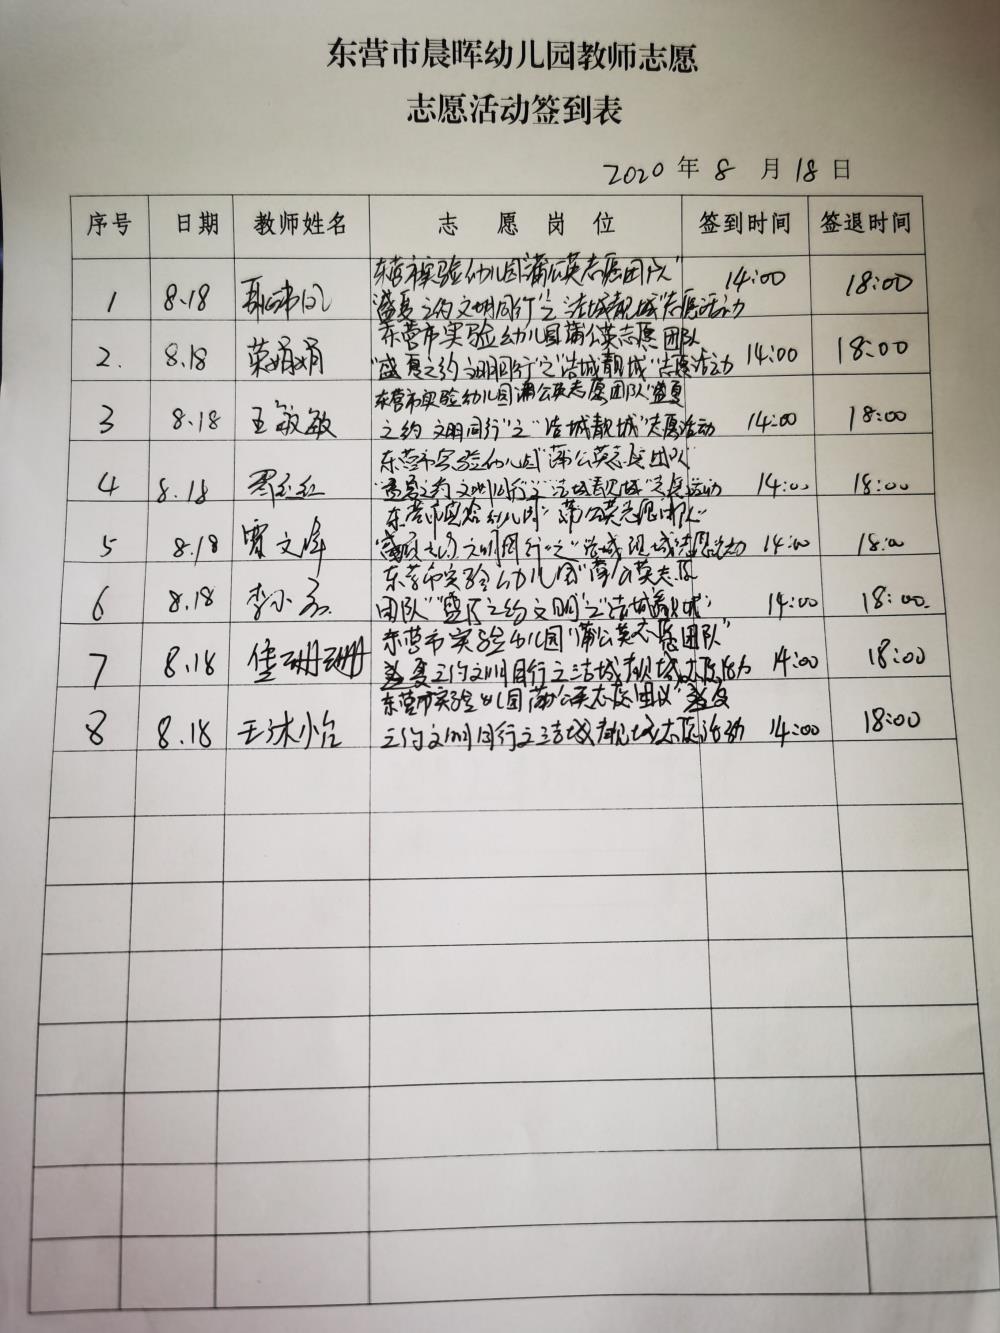 东营市晨晖幼儿园教师志愿
志愿活动签到表
2020 年 8 月 18 日
序号 日期 教师姓名 志 愿 岗 位 签到时间 签退时间
东营市实验幼儿园"蒲公英志愿团队"
1 8.18 14:00 18:00
盛夏之约 文明同行"之"洁城靓城"志愿活动
东营市实验幼儿园蒲公英志愿团队
2. 8.18 荣娟娟 14:00 18:00
"盛夏之约 文明同行"之"洁城靓城"志愿活动
东营市实验幼儿园蒲公英志愿团队"盛夏
3 8.18 王敏敏 14:00 18:00
之约 文明同行"之"洁城靓城"志愿活动
东营市实验幼儿园"蒲公英志愿团队"
4 8.18 14:00 18:00
文明同行"之"洁城靓城"志愿活动
东营市实验幼儿园"蒲公英志愿团队"
5 8.18 贾文峰 14:00 18:00
文明同行"之"洁城靓城志愿活动
东营市实验幼儿园"蒲公英志愿
6 8.18 李小 14:00 18:00.
团队""盛夏之约文明"之"洁城靓城"
东营市实验幼儿园"蒲公英志愿团队"
7 8.18 珊珊 14:00 18:00
盛夏之约文明同行之洁城靓城志愿活动
东营市实验幼儿园蒲公英志愿团队"盛夏
8 8.18 王沐怡 14:00 18:00
之约文明同行之洁城靓城志愿活动